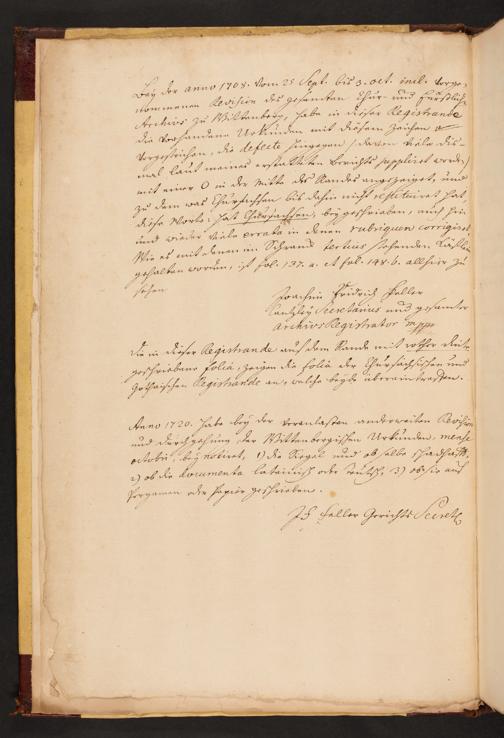 Bey der anno 1708. vom 25 Sept. bis 3. Oct. incl. vorge-
nommenen Revision des gesamten Chur- und Fürstlich
Archivs zu Wittenberg, habe in dieser Registrande
die vorhandene Urkunden mit diesem Zeichen
vorgestrichen, die defecte hingegen / davon viele dis-
mal laut meines erstatteten Berichts suppliret worden /
mit einer O in der Mitte des Randes angezeiget, und
zu dem was Chursachsen bis dahin nicht restituiret hat,
diese Worte: hat Chursachsen, bey geschrieben, auch hin
und wieder viele errata in denen rubriquen corrigiret.
Wie es mit denen im Schranck tertius stehenden
gehalten worden, ist fol. 137. a. et fol. 148. b. allhier zu
sehen.
Joachim Fridrich Feller
Cantzley Secretarius und gesamter
Archivs Registrator mppr
Die in dieser Registrande auf dem Rande mit rother Dinte
geschriebene folia, zeigen die folia der Chursächsischen und
Gothaischen Registrande an, welche beyde übereintreffen.
Anno 1720. habe bey der veranlasten anderweiten Revision
und durchgehung der Wittenbergischen Urkunden, mense
octobri, bey notiret, 1) die Siegel und ob selbe schadhafft,
2) ob die documenta lateinisch oder teutsch, 3) ob sie auf
Pergamen oder Papier geschrieben.
JF Feller Gerichts Secret.